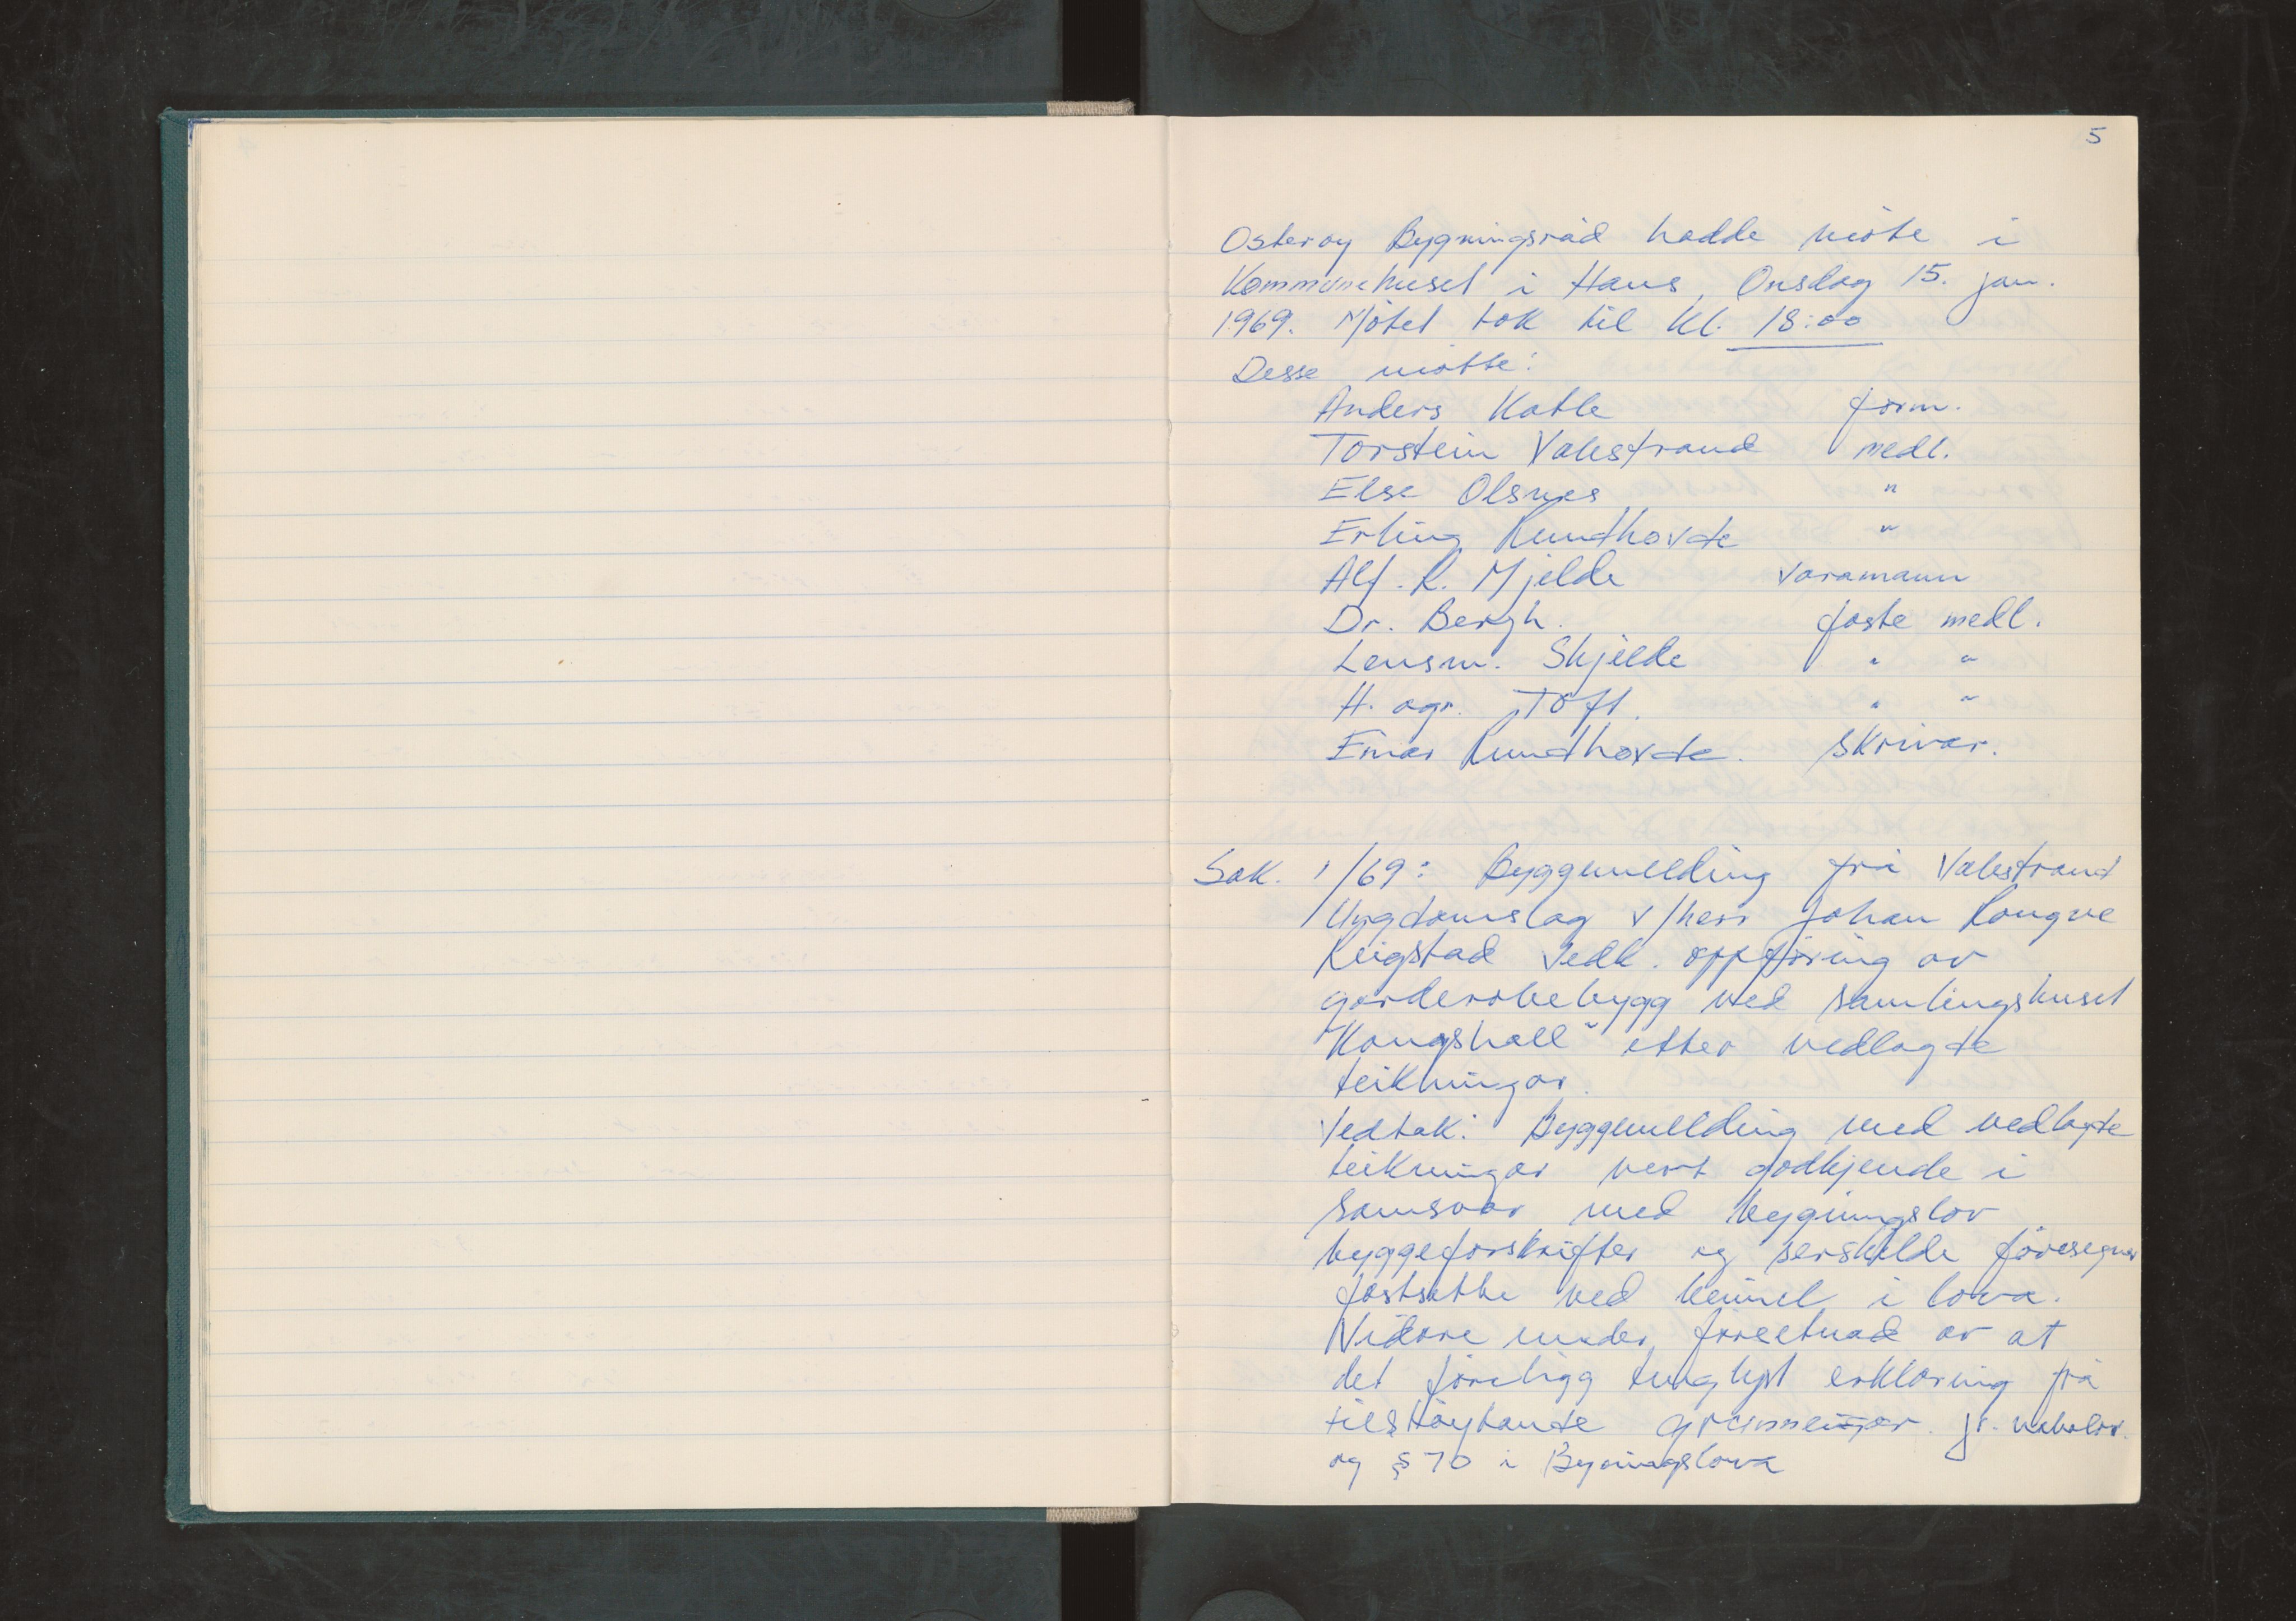 5
Osterøy Bygningsråd hadde møte i
Kommunehuset i Haus, Onsdag 15. jan.
1969. Møtet tok til kl. 18:00
Desse møtte:
Anders Katle form.
Torstein Valestrand medl.
Else Olsnes "
Erling Rundhovde "
Alf. R. Mjelde Varamann
Dr. Bergh. faste medl.
Lensm. Skjelde " "
H. agr. Tøft. " "
Einar Rundhovde. Skrivar.
Sak. 1/69: Byggemelding frå Valestrand
Ungdomslag v/herr Johan Rongve
Reigstad vedk. oppføring av
garderobebygg ved samlingshuset
"Kongshall" etter vedlagde
teikningar.
Vedtak: Byggemelding med vedlagte
teikningar vert godkjende i
samsvar med bygningslov
byggeforskrifter og serskilde føresegner
fastsette ved heimel i lova.
Vidare under føresetnad av at
det føreligg tinglyst erklæring frå
tilstøytande grannei
 jr. nabolov.
og § 70 i Bygningslova